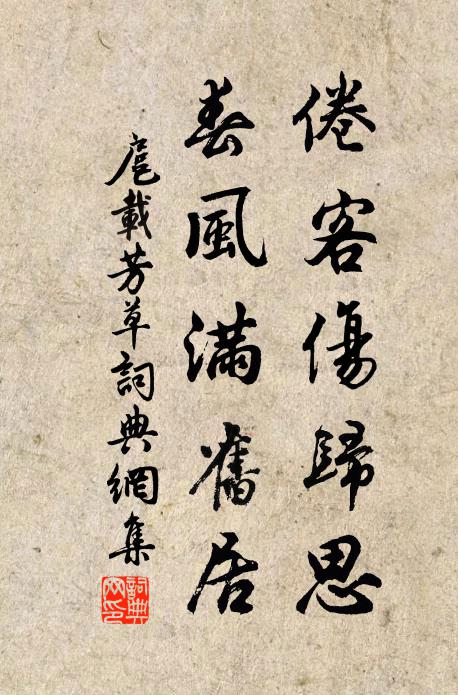 倦客傷歸思
春風滿舊居
扈載芳草詞典網集
詞典
网印